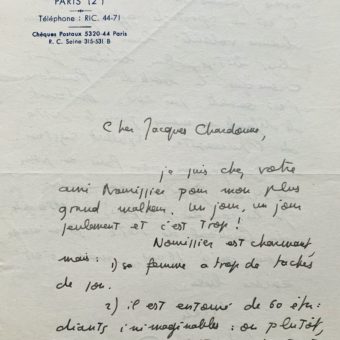 PARIS (2
Téléphone : RIC. 44-71
Chèques Postaux 5320-44 Paris
R. C. Seine 315-531 B
Cher Jacques Chardonne,
je suis chez votre
ami Nomissier pour mon plus
grand malheur. Un jour, un jour
seulement et c'est trop !
Nomissier est charmant
mais :
1) sa femme a trop de taches
de son.
2) il est entouré de 60 étu-
diants inimaginables : ou plutôt,